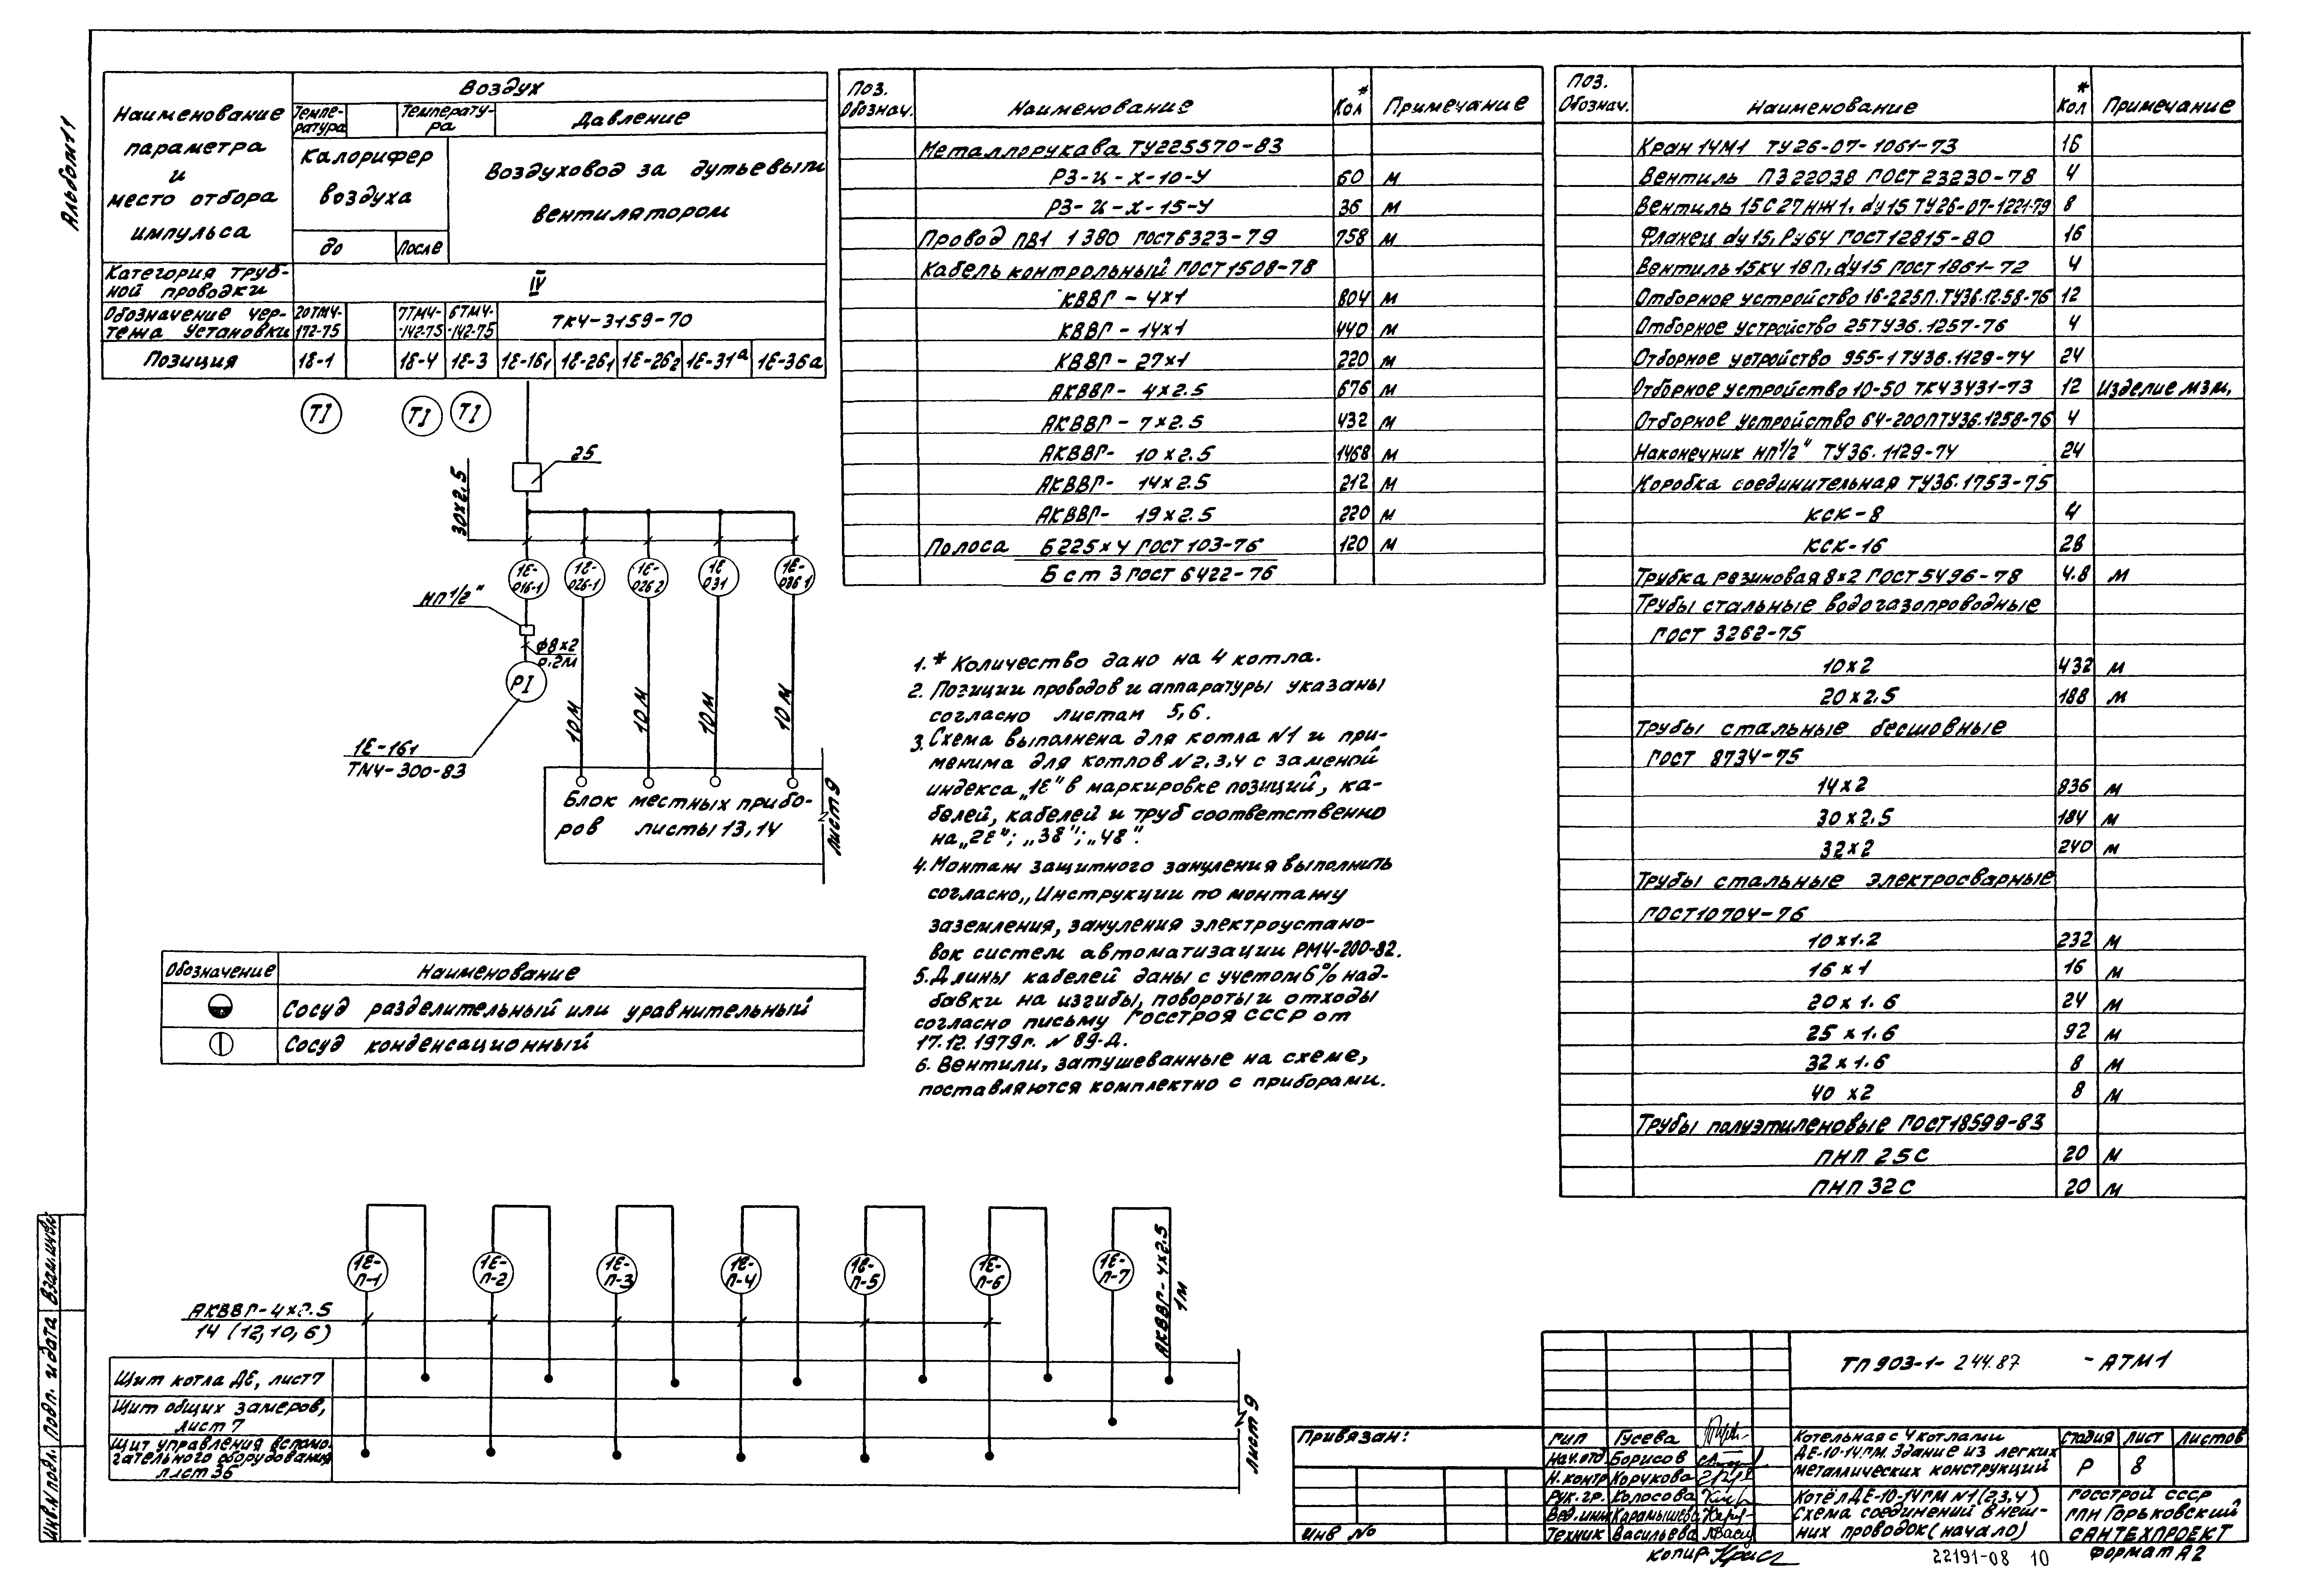 Альбом 11
Наименование параметра и место отбора импульса
Воздух
Темпе-ратура
Температу-ра
Давление
Калорифер воздуха
Воздуховод за дутьевым вентилятором
до
после
Категория труб-ной проводки
IV
Обозначение чер-тежа установки
20ТМ4-172-75
7ТМ4-142-75
6ТМ4-142-75
ТК4-3159-70
Позиция
1Е-1
1Е-4
1Е-3
1Е-16₁
1Е-26₁
1Е-26₂
1Е-31а
1Е-36а
TI
TI
TI
25
30х2.5
1Е-016-1
1Е-026-1
1Е-026 2
1Е 031
1Е-036 1
НП 1/2"
Ф8х2
0.2м
PI
10м
10м
10м
10м
1Е-16₁
ТМ4-300-83
Блок местных прибо-
ров листы 13,14
Лист 9
Обозначение Наименование
Сосуд разделительный или уравнительный
Сосуд конденсационный
Поз. Обознач. Наименование *Кол Примечание
Металлорукава ТУ225570-83
РЗ-Ц-Х-10-У 60 м
РЗ-Ц-Х-15-У 36 м
Провод ПВ1 1 380 ГОСТ6323-79 758 м
Кабель контрольный ГОСТ1508-78
КВВГ-4х1 804 м
КВВГ-14х1 440 м
КВВГ-27х1 220 м
АКВВГ-4х2.5 676 м
АКВВГ-7х2.5 432 м
АКВВГ-10х2.5 1468 м
АКВВГ-14х2.5 212 м
АКВВГ-19х2.5 220 м
Полоса Б225х4 ГОСТ103-76 120 м
Б ст 3 ГОСТ 6422-76
1.* Количество дано на 4 котла.
2. Позиции проводов и аппаратуры указаны
согласно листам 5,6.
3. Схема выполнена для котла N1 и при-
менима для котлов N2,3,4 с заменой
индекса „1Е" в маркировке позиций, ка-
белей, кабелей и труб соответственно
на „2Е"; „3Е"; „4Е".
4. Монтаж защитного зануления выполнить
согласно „Инструкции по монтажу
заземления, зануления электроустано-
вок систем автоматизации РМ4-200-82.
5. Длины кабелей даны с учетом 6% над-
бавки на изгибы, повороты и отходы
согласно письму Госстроя СССР от
17.12.1979г. N 89-Д.
6. Вентили, затушеванные на схеме,
поставляются комплектно с приборами.
Поз. Обознач. Наименование *Кол Примечание
Кран 14М1 ТУ26-07-1061-73 16
Вентиль ПЗ 22038 ГОСТ 23230-78 4
Вентиль 15с27нж1, dу15 ТУ26-07-1221-79 8
Фланец dу15, Ру64 ГОСТ12815-80 16
Вентиль 15кч 18п, dу15 ГОСТ 1861-72 4
Отборное устройство 16-225П.ТУ36.1258-76 12
Отборное устройство 25ТУ36.1257-76 4
Отборное устройство 955-1 ТУ36.1129-74 24
Отборное устройство 10-50 ТК4 3431-73 12 Изделие МЗМ.
Отборное устройство 64-200ПТУ36.1258-76 4
Наконечник НП1/2" ТУ36.1129-74 24
Коробка соединительная ТУ36.1753-75
КСК-8 4
КСК-16 28
Трубка резиновая 8х2 ГОСТ5496-78 4.8 м
Трубы стальные водогазопроводные
ГОСТ 3262-75
10х2 432 м
20х2.5 188 м
Трубы стальные бесшовные
ГОСТ 8734-75
14х2 836 м
30х2.5 184 м
32х2 240 м
Трубы стальные электросварные
ГОСТ10704-76
10х1.2 232 м
16х1 16 м
20х1.6 24 м
25х1.6 92 м
32х1.6 8 м
40х2 8 м
Трубы полуэтиленовые ГОСТ18599-83
ПНП 25С 20 м
ПНП 32С 20 м
1Е-П-1
1Е-П-2
1Е-П-3
1Е-П-4
1Е-П-5
1Е-П-6
1Е-П-7
АКВВГ-4х2.5
1м
АКВВГ-4х2.5
14 (12,10,6)
Щит котла ДЕ, лист7
Щит общих замеров,
лист 7
Щит управления вспомо-
гательного оборудования
лист 36
Лист 9
Инв.N подл. Подп. и дата Взам.инв.
Привязан:
Инв No
ТП 903-1-244.87 -АТМ1
ГИП Гусева
Нач.отд Борисов
Н.контр Корукова
Рук.гр. Колосова
Вед.инж Карамышева
Техник Васильева
Котельная с 4 котлами
ДЕ-10-14ГМ. Здание из легких
металлических конструкций
Стадия Лист Листов
Р 8
Котёл ДЕ-10-14ГМ N1(2,3,4)
Схема соединений внеш-
них проводок (начало)
Госстрой СССР
ГПИ Горьковский
САНТЕХПРОЕКТ
Копир.
22191-08 10
Формат А2